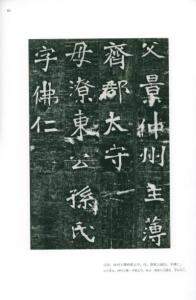 父景仲州主薄
齊郡太守
母潦東公孫氏
字佛仁